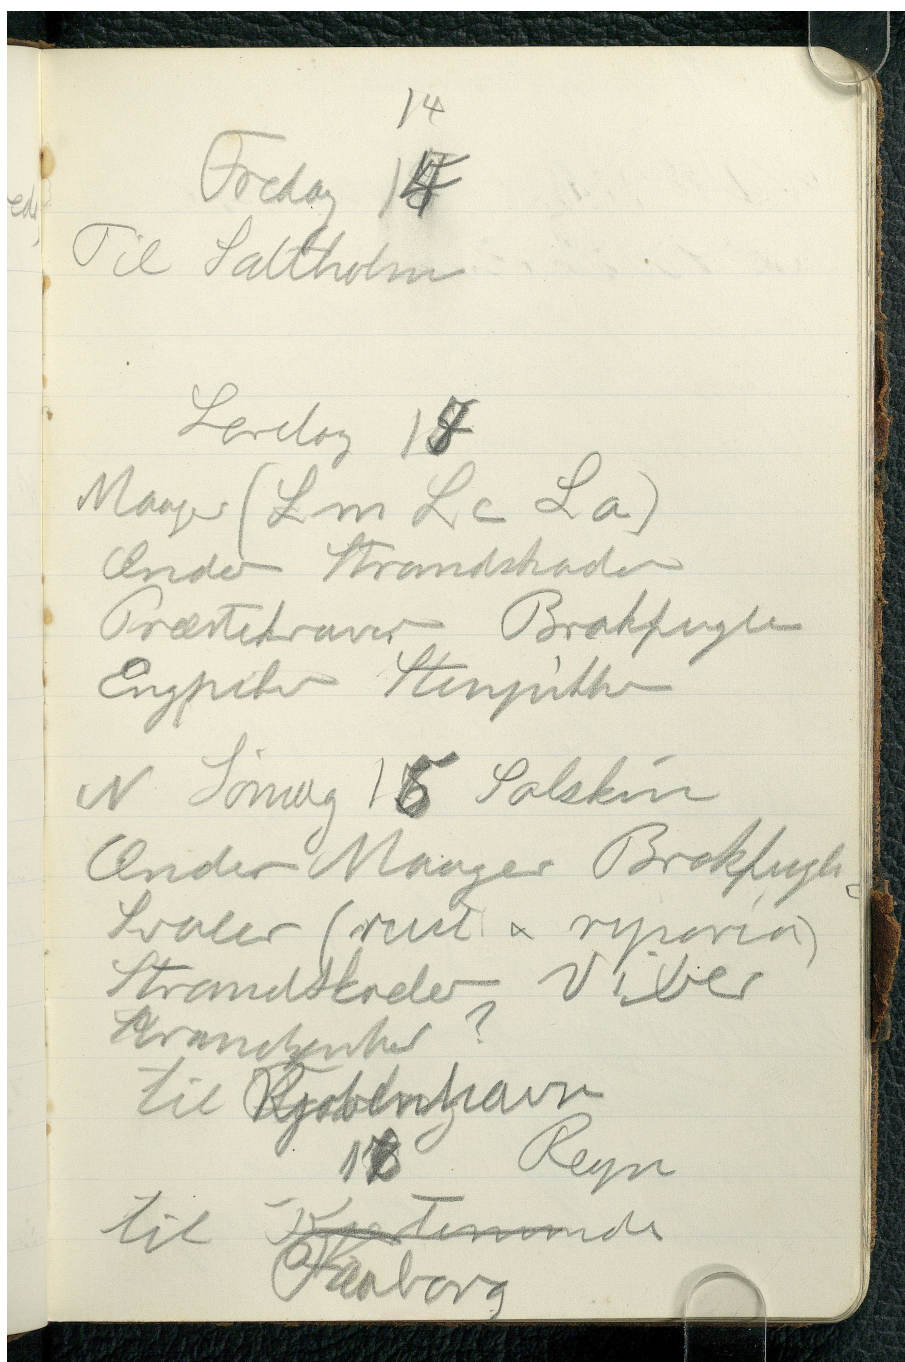 14
Fredag 14
Til Saltholm
Lørdag 1
Maager (Lm Lc La)
Ænder Strandskader
Præstekraver Brokfugle
Engpiber Stenpikker
N Søndag 1 Solskin
Ænder Maager Brokfugle
Svaler (rust & ryparia)
Strandskader Viber
?
til Kjøbenhavn
1 Regn
til Kjerteminde
Faaborg